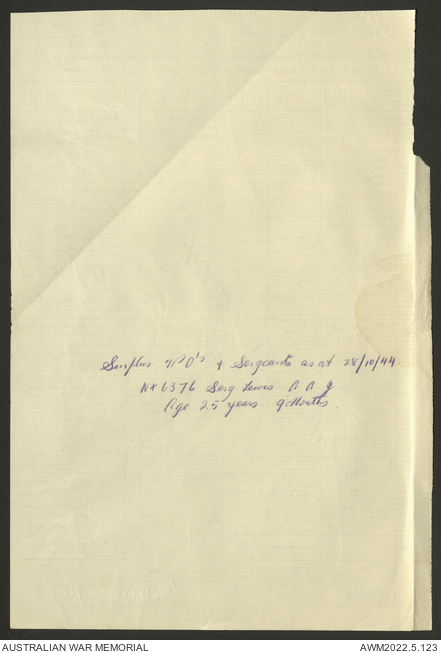 Surplus WO's & Sergeants as at 28/10/44.
NX6376 Serg Lewis A A J
Age 25 years 9 Months.
AUSTRALIAN WAR MEMORIAL
AWM2022.5.123